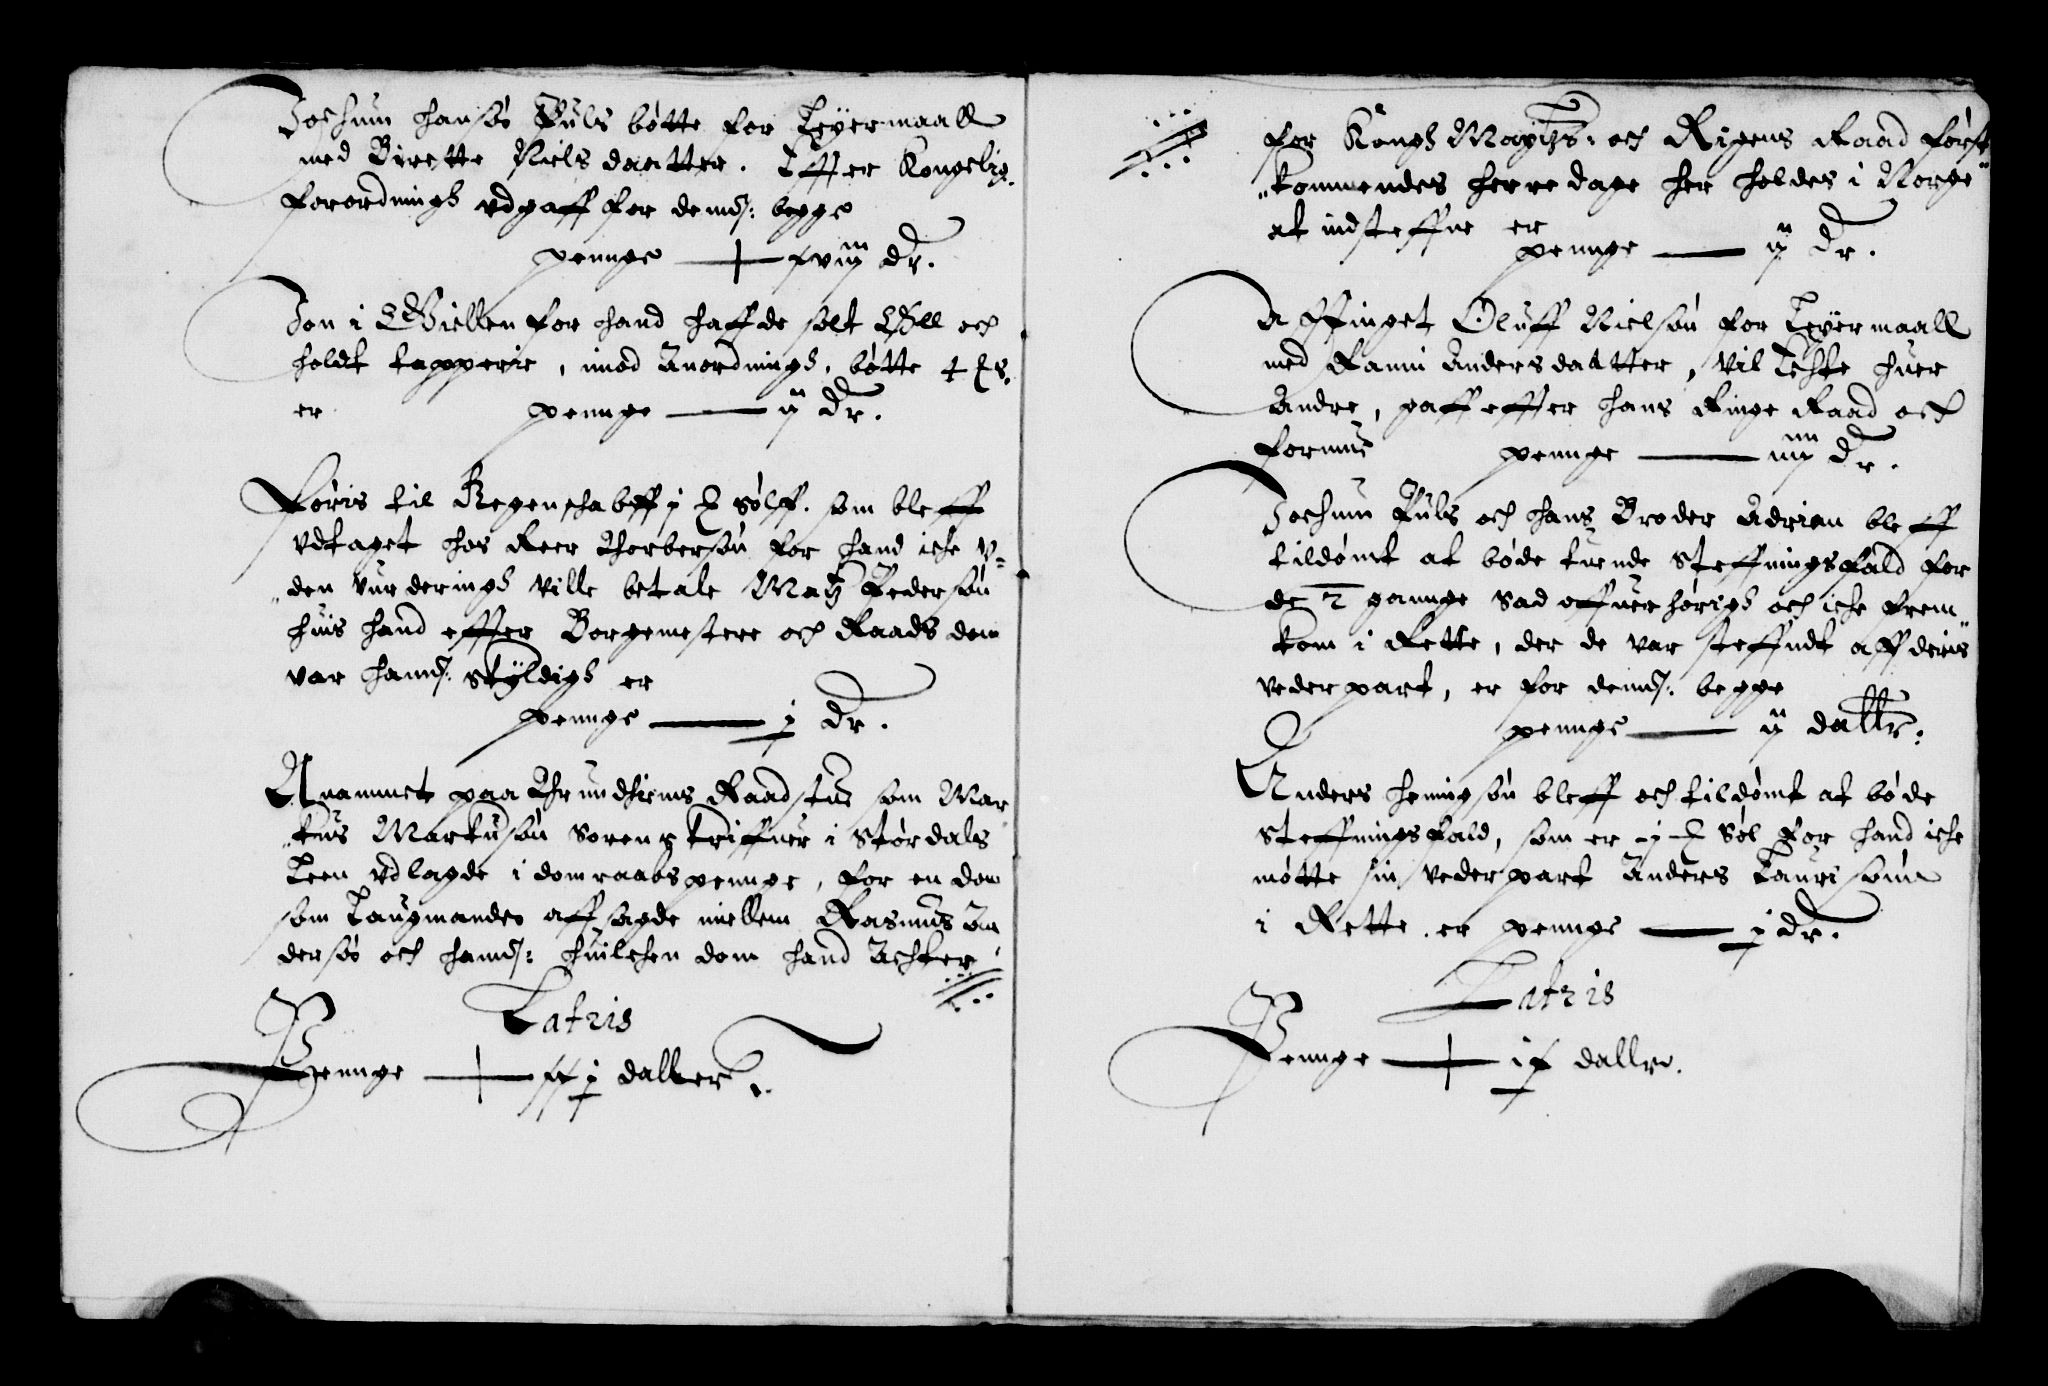 Jochum Hansøn Puls bøtte for Leyermaall
med Birette Niels daatter. Effter Kongelig.
Forordningh vdgaff for dem: begge
penge xviij dr.
Jon i Wiellen for hand haffde solt Øll och
holdt tapperie, imod anordningh, bøtte
er penge ij dr.
Føris til Regenschabff j Sølff. som bleff
vdtaget hos Peer Thorbersøn for hand iche v-
den vurderingh ville betale Matz Pedersøn
huis hand effter Borgemestere och Raads dom
var ham: skyldigh er
penge j dr.
Anammet paa Thrundhiems Raadstue som Mar
kus Markusøn Sorenschriffuer i Størdals
Leen vdlagde i domraabs penge, for en dom
som Laugmanden affsagde mellem Rasmus An
dersøn och ham: huilchen dom hand achter
Latris
Penge xxj daller.
for Kongh Maytz: och Rigens Raad først
kommendes herre dage her holdes i Norge
at indsteffne er
penge ij dr.
Affinget Oluff Nielsøn for Leyermaall
med Karrin Anders daatter, vil Echte huer
Andre, gaff effter hans Ringe Raad och
formue penge iiij dr.
Jochum Puls och hans Broder Adrian bleff
tildømt at bøde tuende Steffningsfald for
de 2 gannge sad offuerhørigh och iche frem
kom i Rette, der de var steffndt aff deris
vederpart, er for dem: begge
penge ij dallr:
Anders Heningsøn bleff och tildømt at bøde
Steffningsfald, som er j Søl for hand iche
møtte sin vederpart Anders Laurisøn
i Rette. er penge j dr.
Latris
Penge ix dallr.